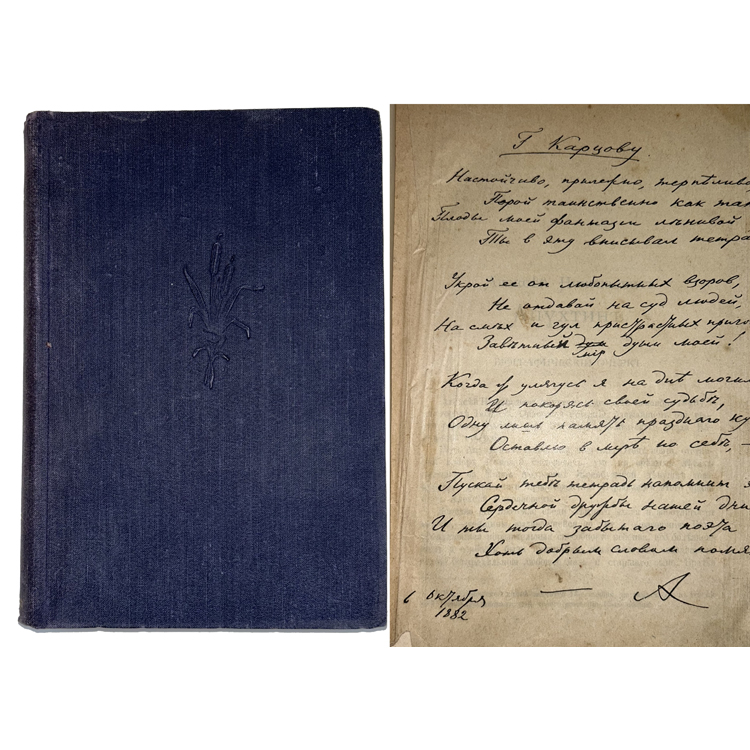 Г Карцову
Настойчиво, прилежно, терпѣливо
Порой таинственно какъ тать
Плоды моей фантазіи лѣнивой
Ты в эту вписывал тетра
Укрой ее от любопытных взоров,
Не отдавай на суд людей,
На смѣх и гул пристрастных приго
Завѣтный мір души моей!
Когда ж улягусь я на днѣ моги
И покорясь своей судьбѣ,
Одну лишь память празднаго ку
Оставлю в мірѣ по себѣ, —
Пускай тебѣ тетрадь напомнит э
Сердечной дружбы нашей дни
И ты тогда забытаго поэта
Хоть добрым словом помя
6 Октября
1882
— А